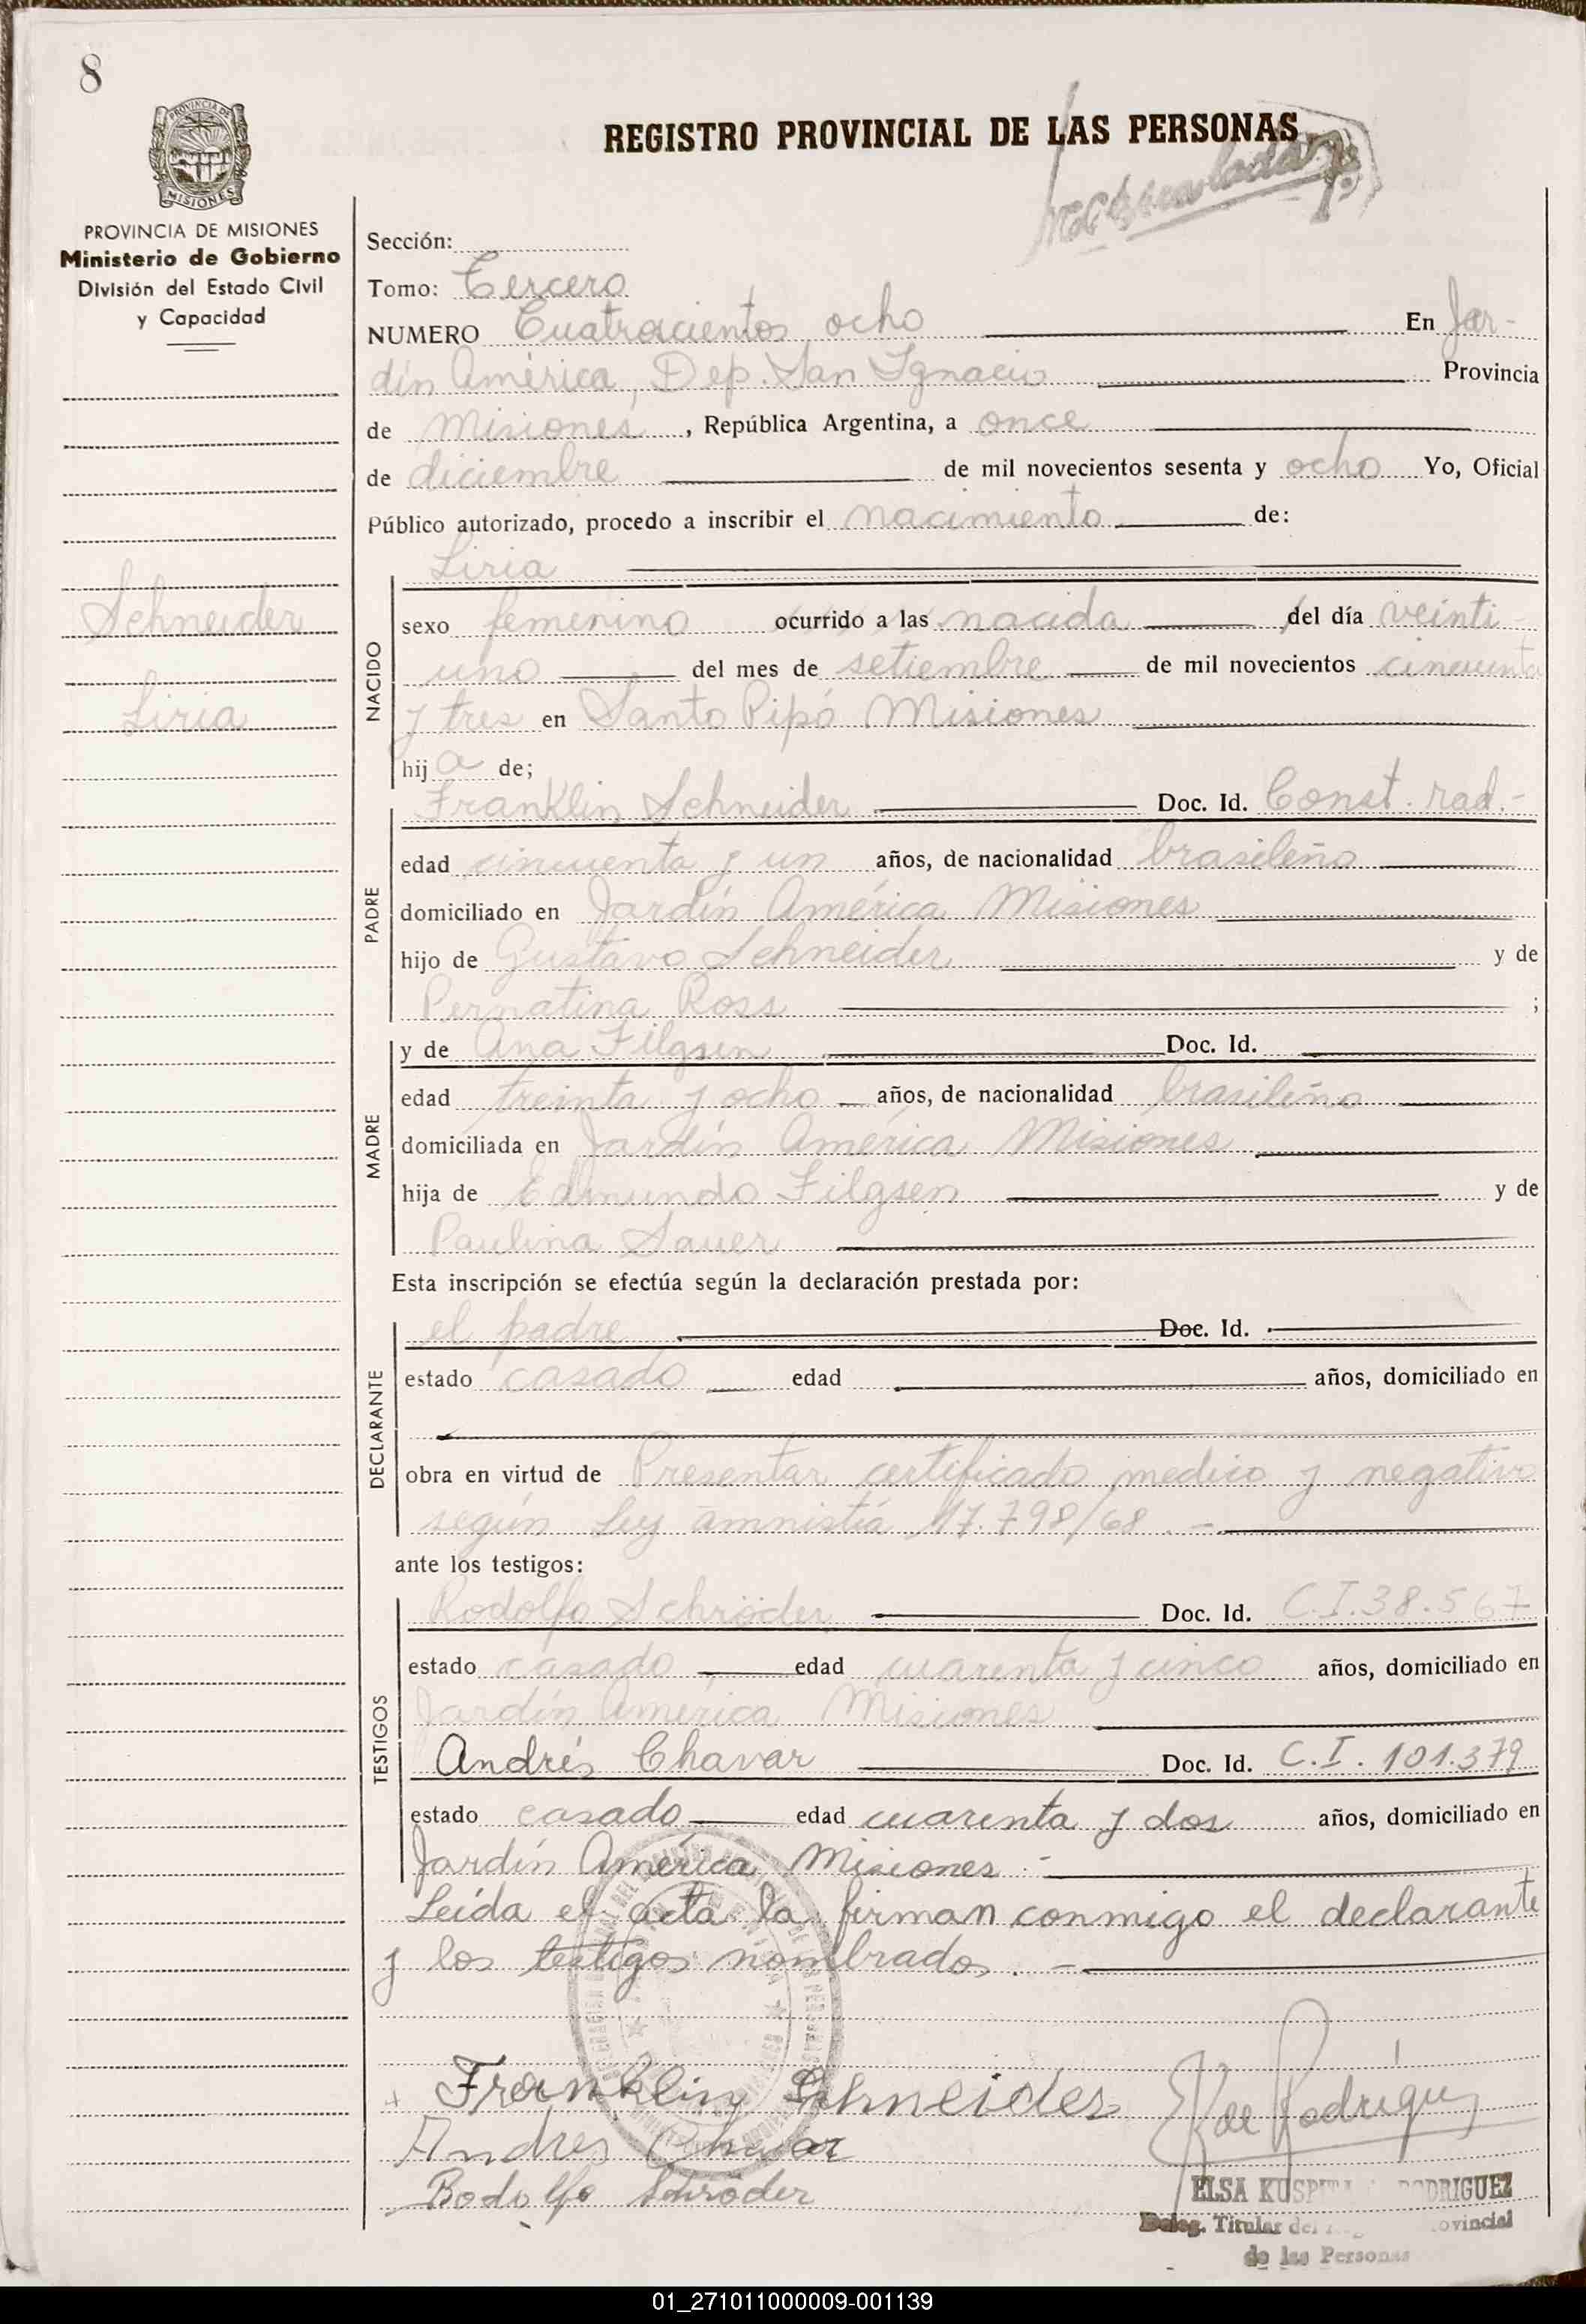 8
PROVINCIA DE
MISIONES
REGISTRO PROVINCIAL DE LAS PERSONAS
PROVINCIA DE MISIONES
Ministerio de Gobierno
División del Estado Civil
y Capacidad
Sección:
Tomo: Tercero
NUMERO Cuatrocientos ocho En Jar-
dín América, Dep. San Ignacio Provincia
de Misiones, República Argentina, a once
de diciembre de mil novecientos sesenta y ocho Yo, Oficial
Público autorizado, procedo a inscribir el nacimiento de:
Liria
Schneider
Liria
NACIDO
sexo femenino ocurrido a las nacida del día veinti-
uno del mes de setiembre de mil novecientos cincuenta
y tres en Santo Pipó Misiones
hija de;
PADRE
Franklin Schneider Doc. Id. Const. rad.-
edad cincuenta y un años, de nacionalidad brasileña
domiciliado en Jardín América Misiones
hijo de Gustavo Schneider y de
Ross ;
MADRE
y de Ana Filgsen Doc. Id.
edad treinta y ocho años, de nacionalidad brasileña
domiciliada en Jardín América Misiones
hija de Edmundo Filgsen y de
Paulina Sauer
Esta inscripción se efectúa según la declaración prestada por:
DECLARANTE
el padre Doc. Id.
estado casado edad años, domiciliado en
obra en virtud de Presentar certificado medico y negativo
según Ley amnistía 17.798/68.-
ante los testigos:
TESTIGOS
Rodolfo Schröder Doc. Id. C.I. 38.567
estado casado edad cuarenta y cinco años, domiciliado en
Jardín América Misiones
Andrés Chavar Doc. Id. C.I. 101.379
estado casado edad cuarenta y dos años, domiciliado en
Jardín América Misiones.-
Leída el acta la firman conmigo el declarante
y los testigos nombrados.-
Franklin Schneider
E K de Rodríguez
Andres Chavar
Rodolfo Schröder
ELSA RODRIGUEZ
Deleg. Titular del ovincial
de las Personas
01_271011000009-001139